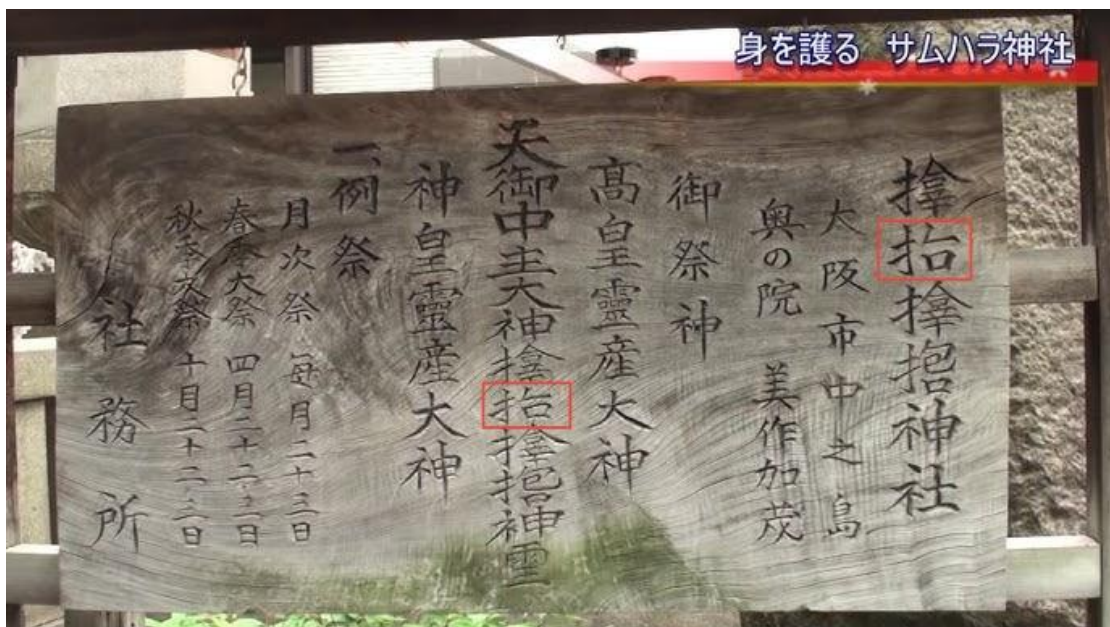 身を護る サムハラ神社
神社
大阪市中之島
奥の院 美作加茂
御祭神
髙皇靈産大神
天御中主大神 神霊
神皇靈産大神
一、例祭
月次祭 毎月二十三日
春季大祭 四月二十二・三日
秋季大祭 十月二十二・三日
社務所